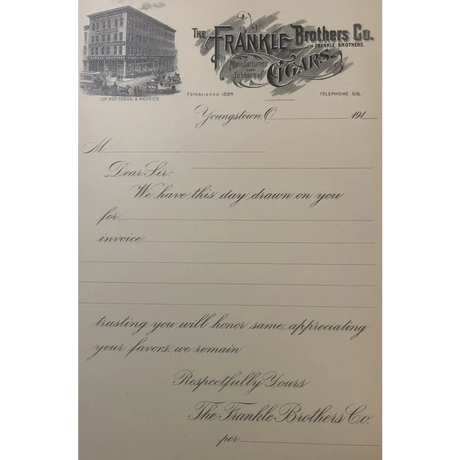 THE FRANKLE Brothers Co.
FRANKLE BROTHERS.
Manufacturers
AND
Jobbers of
CIGARS
ESTABLISHED 1884
TELEPHONE 516.
COR. WEST FEDERAL & PHELPS STS.
Youngstown, O. 191
M
Dear Sir:
We have this day drawn on you
for
invoice
trusting you will honor same, appreciating
your favors, we remain
Respectfully Yours
The Frankle Brothers Co.
per